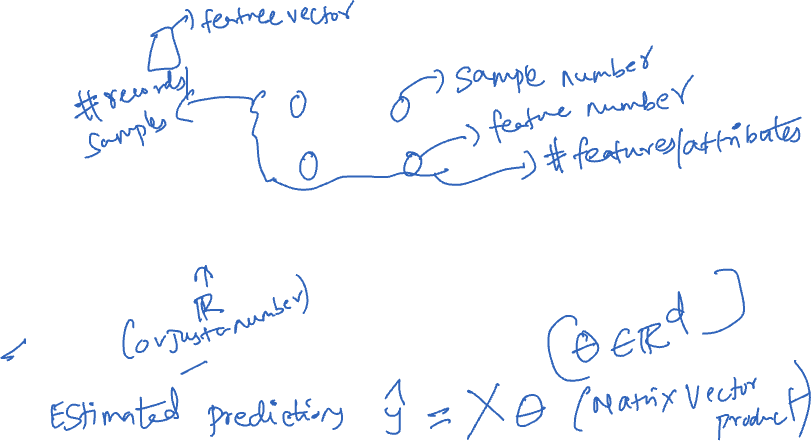 feature vector
# records/
samples
sample number
feature number
# features/attributes
ℝ
(or just a number)
[θ ∈ ℝ^d]
Estimated predictions ŷ = Xθ (Matrix Vector
product)